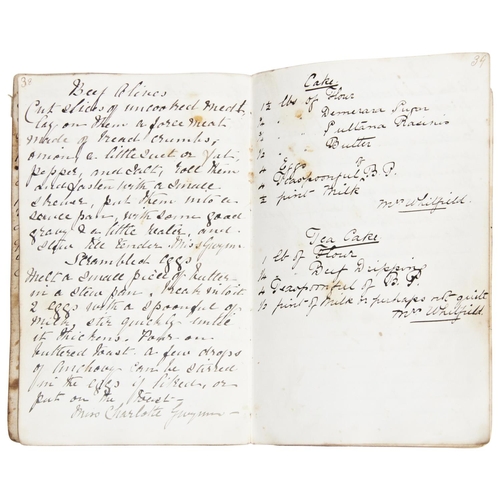 38
Beef Olives
Cut slices of uncooked meat.
Lay on them a forcemeat
made of bread crumbs,
onion, a little suet or fat,
pepper, and salt, roll them
and fasten with a small
skewer, put them into a
sauce pan, with some good
gravy & a little water, and
stew till tender. Miss Gwynn
Scrambled eggs
Melt a small piece of butter
in a stew pan. Break into it
2 eggs with a spoonful of
milk, stir quickly until
it thickens. Pour on
buttered toast. A few drops
of Anchovy can be stirred
in the eggs if liked, or
put on the toast -
Miss Charlotte Gwynn -
39
Cake
lb of Flour
Demerara Sugar
Sultana Raisins
Butter
4 Eggs
Teaspoonful B.P.
pint Milk
Mrs Whitfield.
Tea Cake
1 lb of Flour
Beef Dripping
Teaspoonful of B.P.
½ pint of Milk or perhaps not quite
Mrs Whitfield